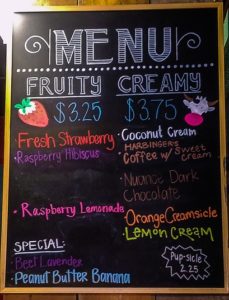 MENU
FRUITY CREAMY
$3.25 $3.75
Fresh Strawberry
·Raspberry Hibiscus
·Raspberry Lemonade
·Coconut Cream
·HARBINGER'S
Coffee w/ Sweet
cream
·Nuance Dark
Chocolate
·Orange Creamsicle
·Lemon Cream
SPECIAL:
·Beet Lavender
·Peanut Butter Banana
Pup-sicle
2.25